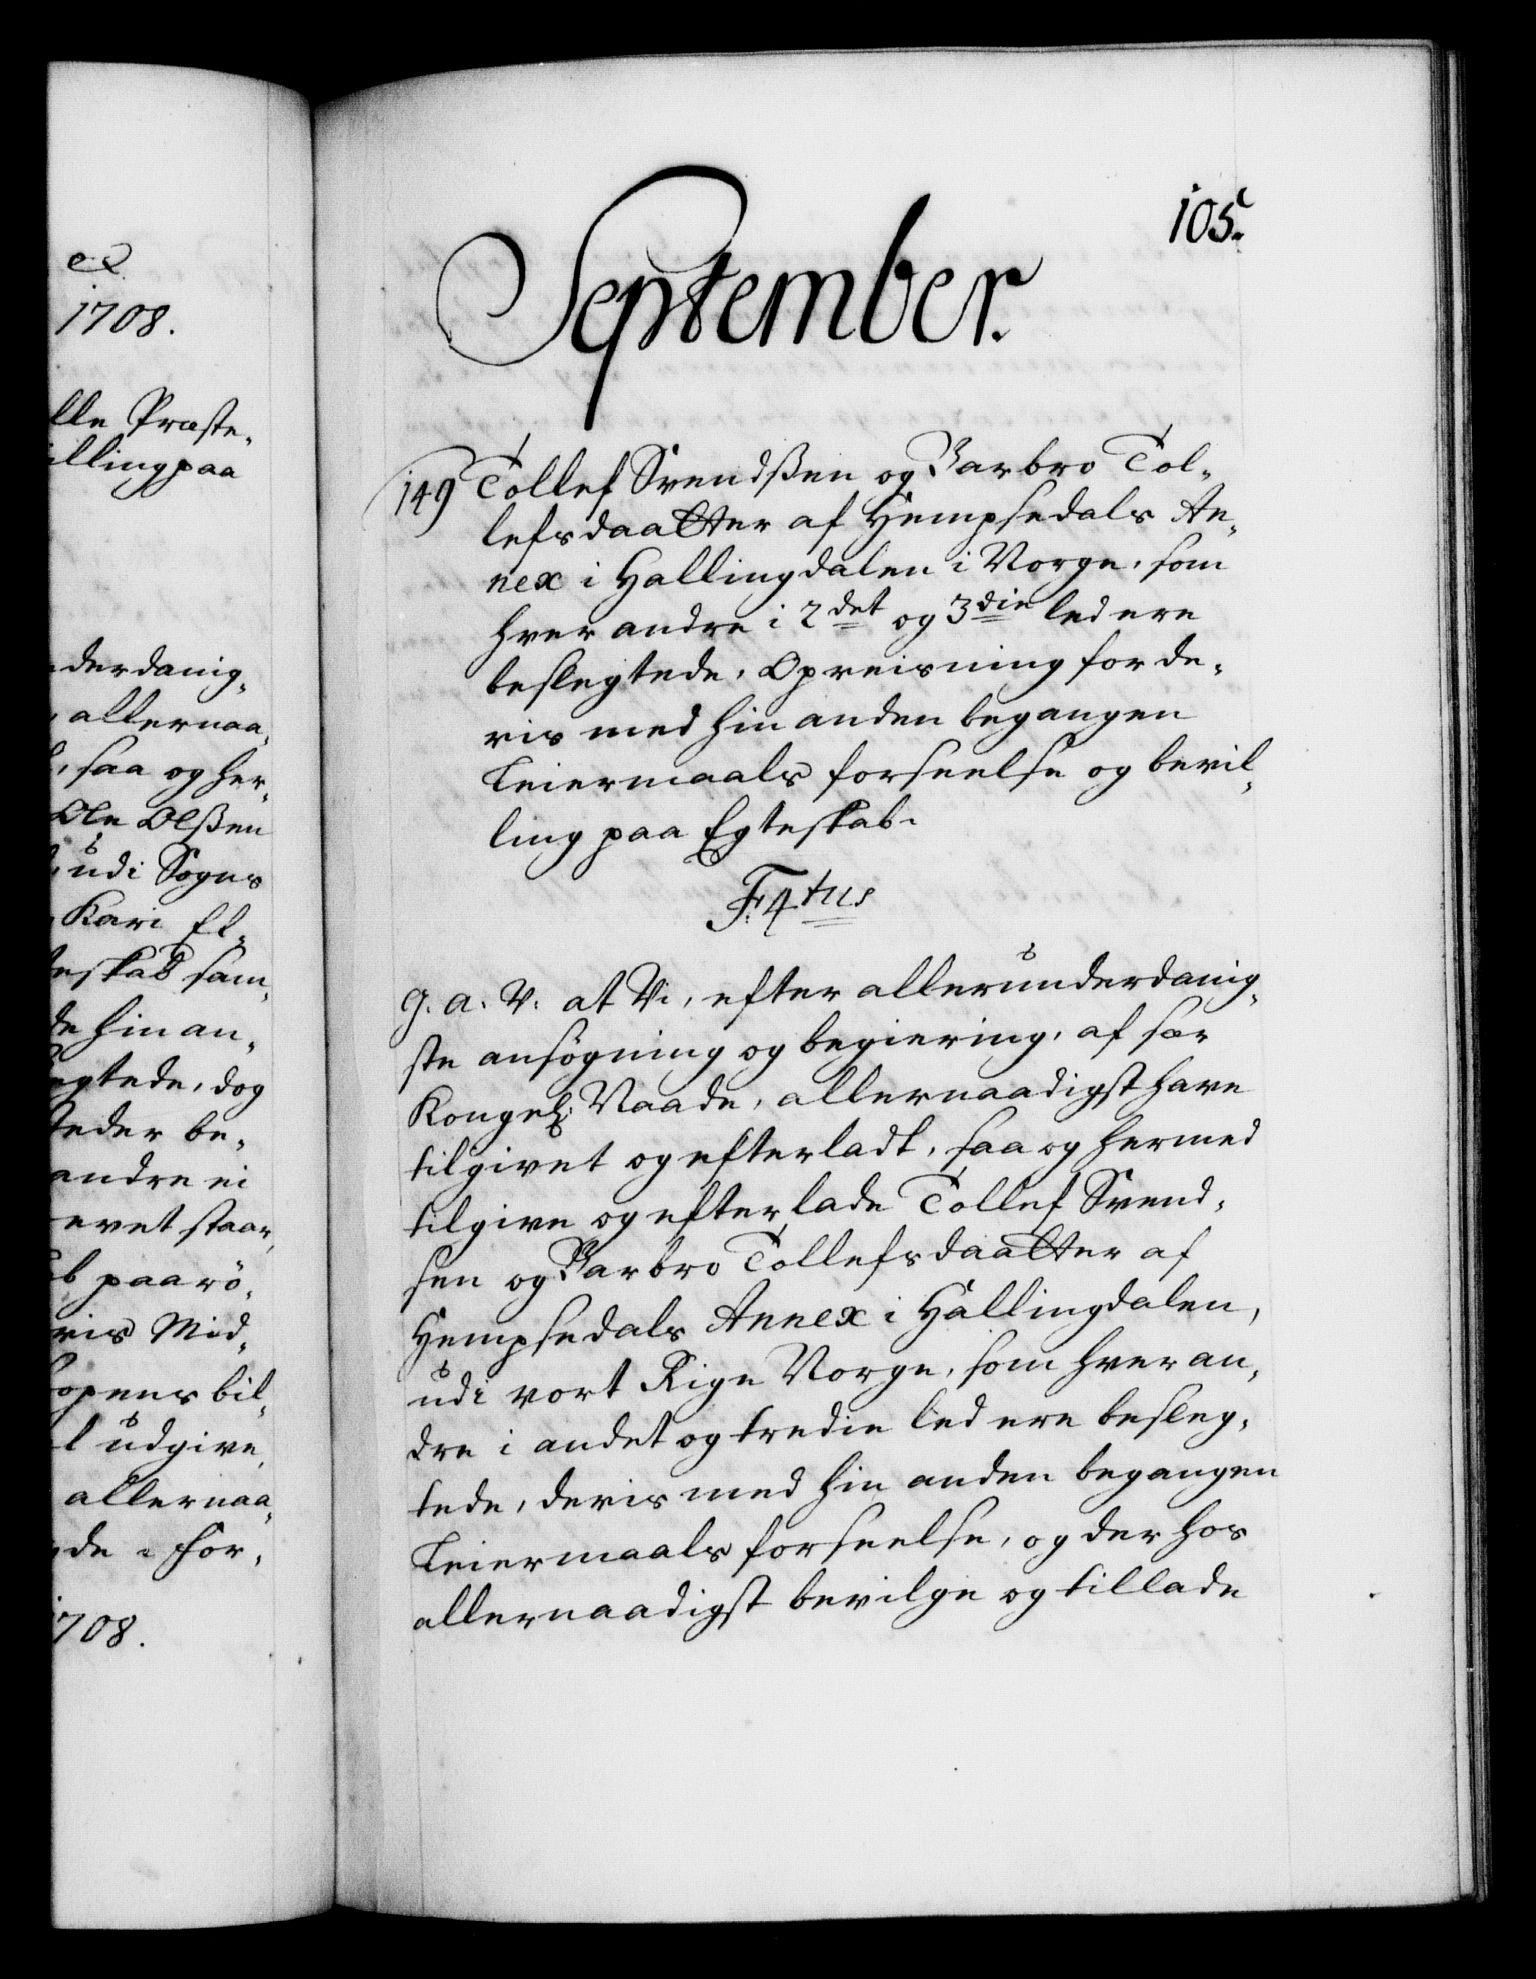 ex
1708.
lle Præste-
illing paa
nderdanig-
allernaa-
saa og her-
Ole Olßen
udi Sogns
Kari El-
teskab sam-
de hinan-
egtede, dog
steder be-
andre ei
evet staar,
b paa rö-
ris Mid-
opens bil-
l udgive,
allernaa-
de i for-
1708.
105.
September.
149 Tollef Svendßen og Barbro Tol-
lefsdaatter af Hempsedals An-
nex i Hallingdalen i Norge, som
hverandre i 2det og 3die led ere
beslegtede, Opreisning for de-
ris med hinanden begangen
Leiermaals forseelse og bevil-
ling paa Egteskab.
F: 4tus
G. A. V: at Vi, efter allerunderdanig-
ste ansögning og begiering, af sær
Kongel: Naade, allernaadigst have
tilgivet og efterladt, saa og hermed
tilgive og efterlade Tollef Svend-
sen og Barbro Tollefsdaatter af
Hempsedals Annex i Hallingdalen,
udi vort Rige Norge, som hveran-
dre i andet og tredie led ere besleg-
tede, deris med hinanden begangen
Leiermaals forseelse, og der hos
allernaadigst bevilge og tillade